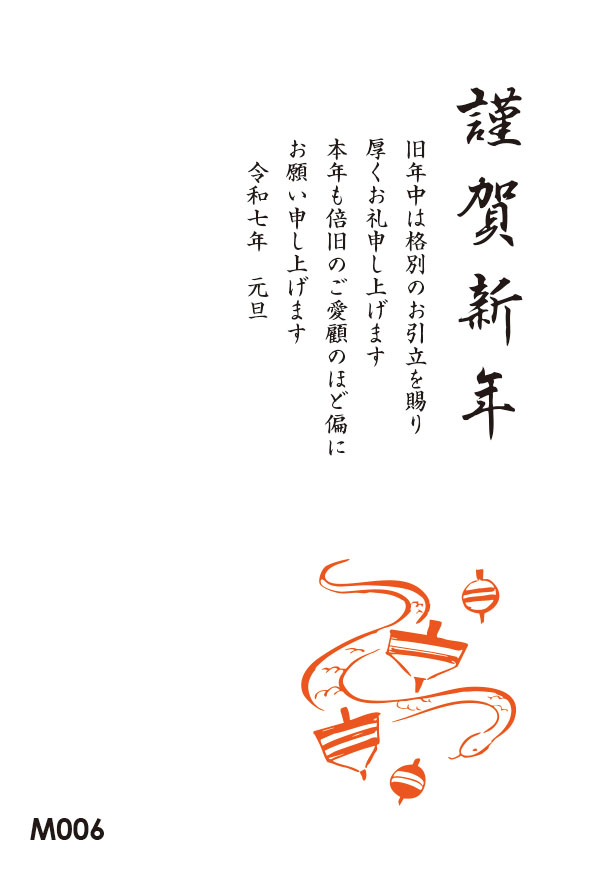 謹賀新年
旧年中は格別のお引立を賜り
厚くお礼申し上げます
本年も倍旧のご愛顧のほど偏に
お願い申し上げます
令和七年　元旦
M006